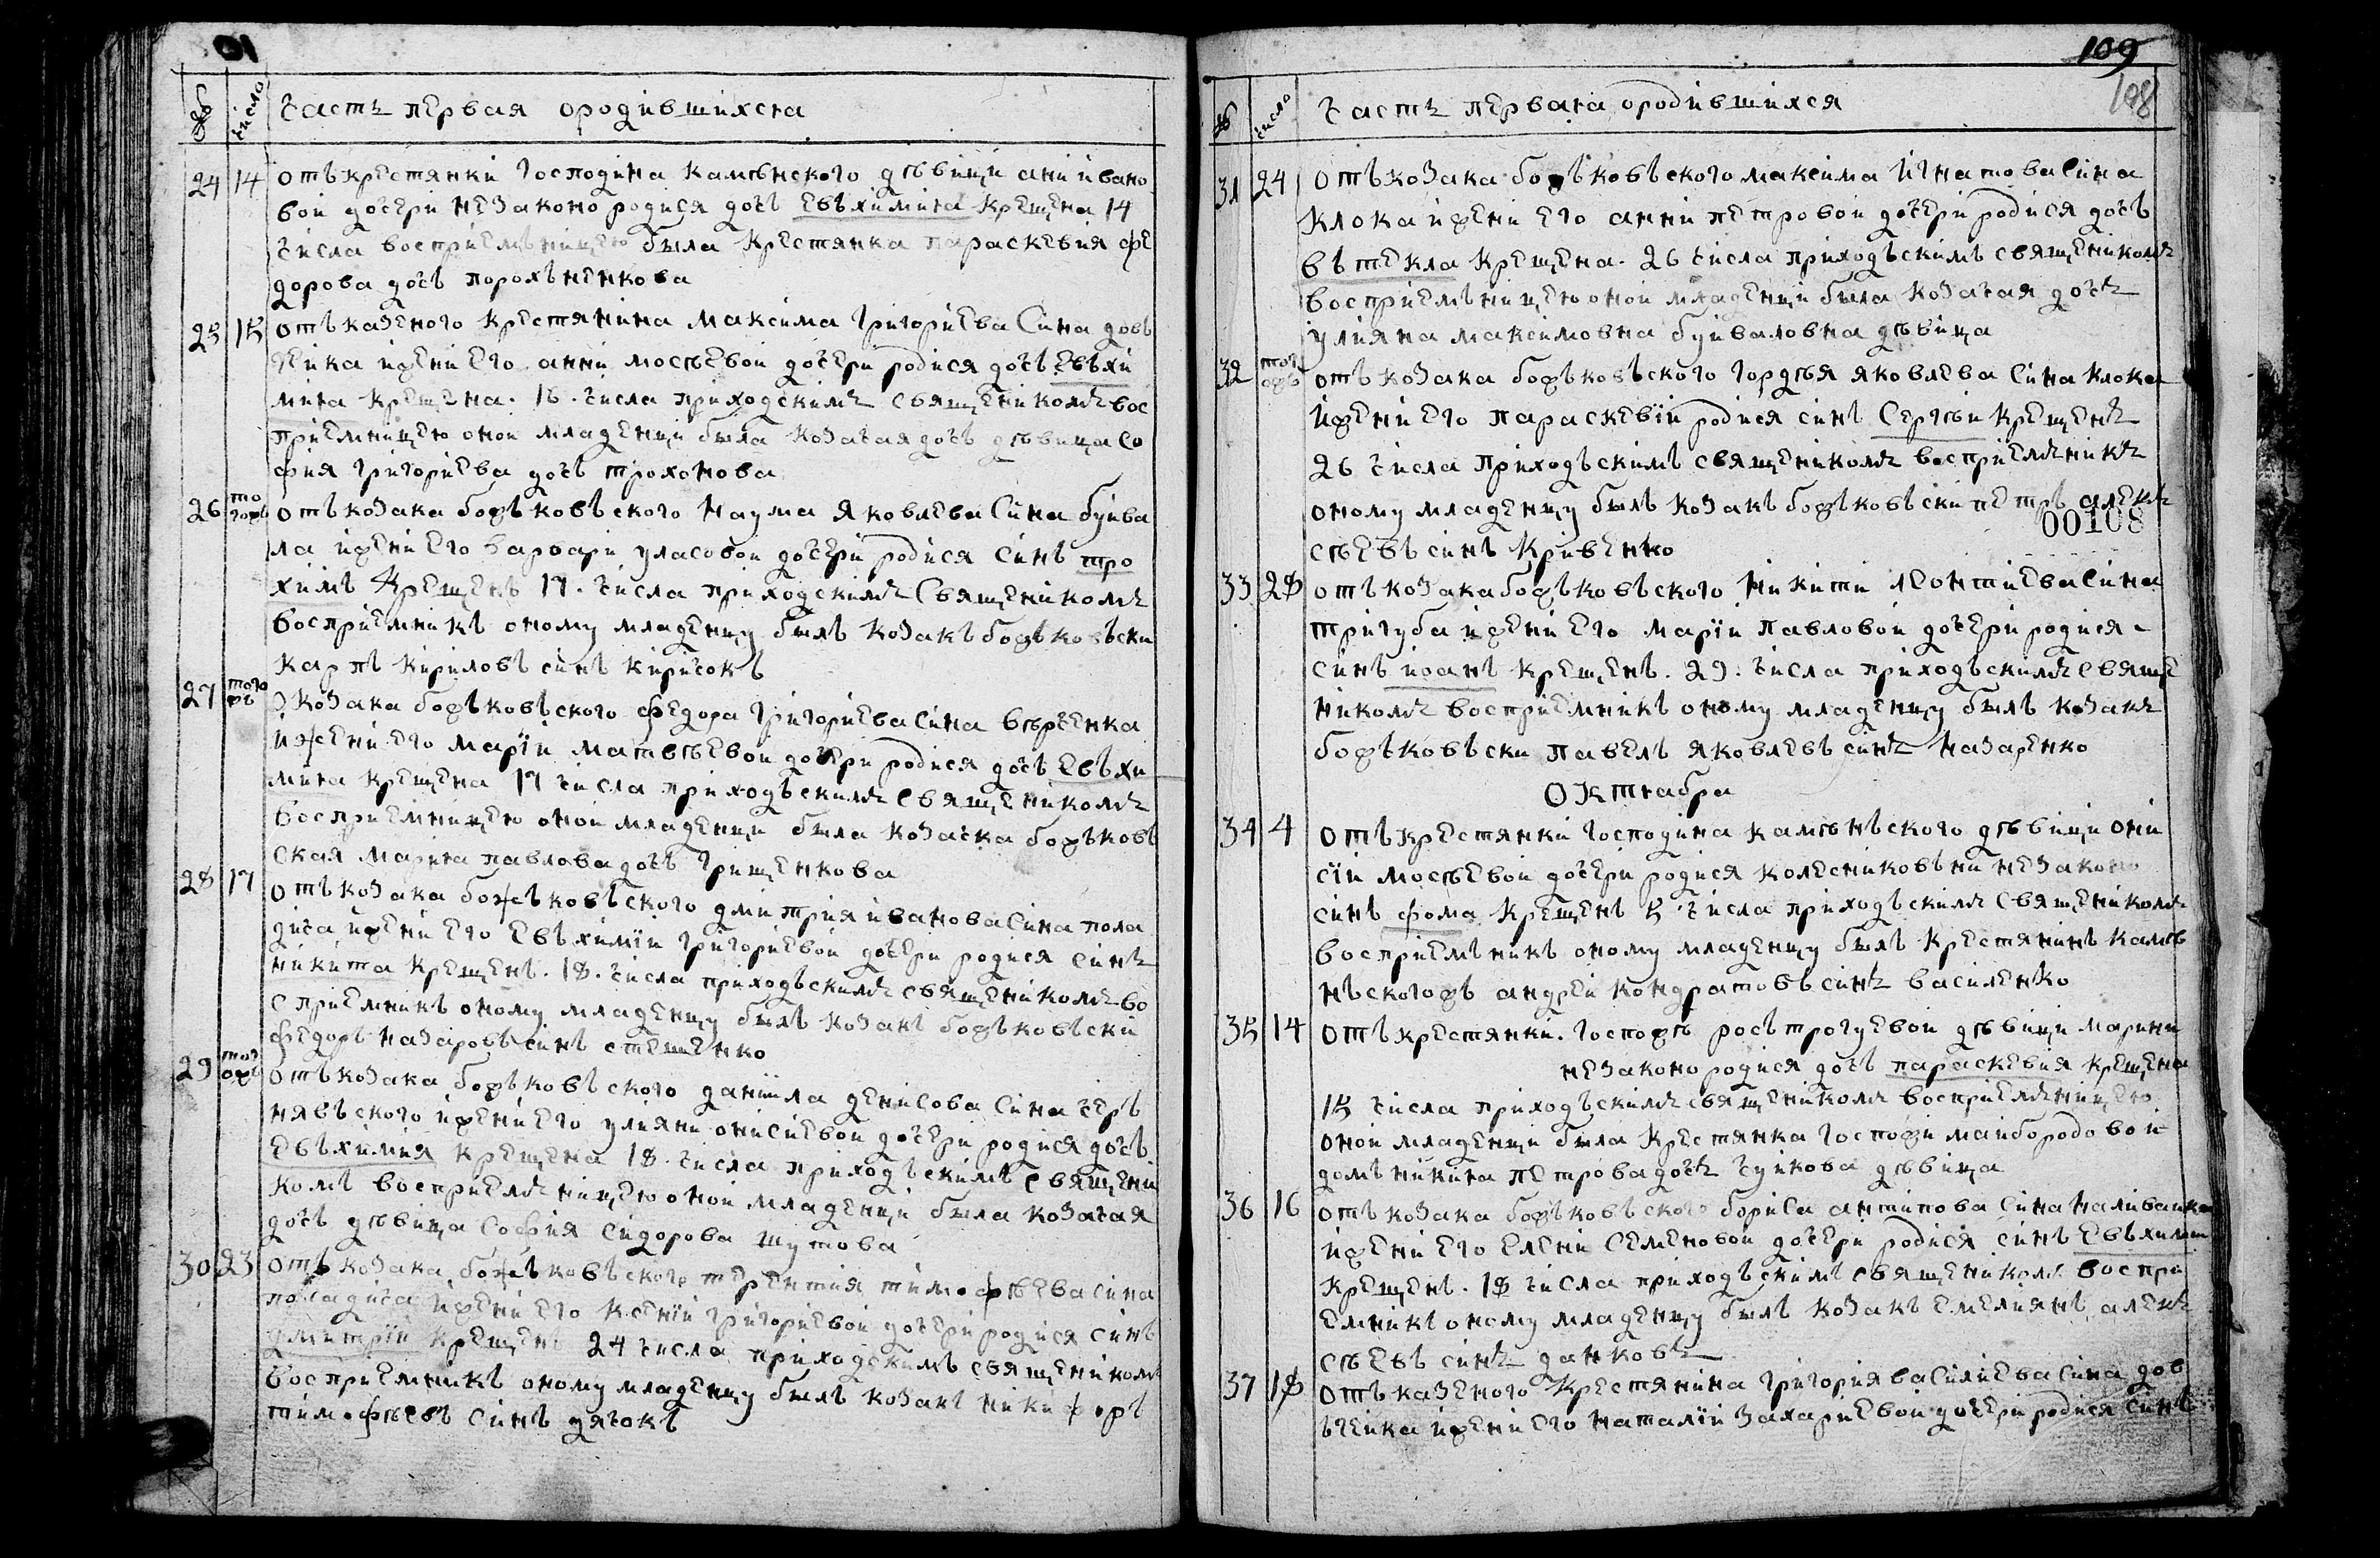 10
№ число Часть первая о родившихся
24 14 отъ крестянки господина Каменского дѣвици ани ивано
вои дочери незаконо родися дочъ Евъхимиа крещена 14
числа восприемъницею была крестянка параскевия фе
дорова дочъ порохъненкова
25 15 отъ казеного крестянина максима григориева сина довъ
гейка и жени его анни мосѣевои дочери родися дочъ Евъхи
миа крещена. 16. числа приходскимъ священикомъ вос
приемницею оной младенци была козачая дочъ дѣвица со
фия григориева дочъ трохонова
26 того жъ отъ козака божъковъского наума яковлева сина буйва
ла и жени его варвари уласовои дочери родися синъ тро
химъ крещенъ 17. числа приходскимъ священикомъ
восприемникъ оному младенцу былъ козакъ божъковъски
карпъ кириловъ синъ киричокъ
27 того жъ о козака божъковъского федора григориева сина вѣрченка
и жени его марїи матвѣевои дочери родися дочъ Евъхи
миа крещена 17 числа приходъскимъ священикомъ
восприемницею оной младенци была козачка божъковъ
ская мариа павлова дочъ грищенкова
28 17 отъ козака божъковъского дмитрия иванова сина пола
дича и жени его евъхимїи григориевои дочери родися синъ
никита крещенъ. 18. числа приходъскимъ священикомъ во
сприемникъ оному младенцу былъ козакъ божъковъски
федоръ назаровъ синъ стешенко
29 тогожъ отъ козака божъковъского даниїла денисова сина черъ
нявъского и жени его улияни онисиевои дочери родися дочъ
Евъхимия крещена 18. числа приходъскимъ священи
комъ восприемъницею оной младенци была козачая
дочъ дѣвица софия сидорова шутова
30 23 отъ козака божъковъского терентия тимофѣева сина
поладича и жени его ксенїи григориевои дочери родися синъ
дмитрїи крещенъ 24 числа приходскимъ священикомъ
восприемникъ оному младенцу былъ козакъ никифоръ
тимофѣевъ синъ дячокъ
109
108
№ число Часть первая о родившихся
31 24 отъ козака божъковъского максима игнатова сина
клока и жени его анни петровои дочери родися дочъ
въ текла крещена. 26 числа приходъскимъ священикомъ
восприемъницею оной младенци была козачая дочъ
улияна максимовна буйваловна дѣвица
32 тогожъ отъ козака божъковъского гордѣя яковлева сина клока
и жени его параскевїи родися синъ сергѣи крещенъ
26 числа приходъскимъ священикомъ восприемъникъ
оному младенцу былъ козакъ божъковъски петръ алекъ
00108
сѣевъ синъ кривенко
33 28 отъ козака божъковъского никити леонтиева сина
тригуба и жени его марїи павловои дочери родися
синъ иоанъ крещенъ. 29. числа приходъскимъ свяще
никомъ восприемникъ оному младенцу былъ козакъ
божъковъски павелъ яковлевъ синъ назаренко
октиабра
34 4 отъ крестянки господина каменъского дѣвици они
сїи мосѣевои дочери родися колесниковъни незаконо
синъ фома крещенъ 5 числа приходъскимъ священикомъ
восприемъникъ оному младенцу былъ крестянинъ камѣ
нъскогожъ андрей кондратовъ синъ василенко
35 14 отъ крестянки. госпожѣ росътрогуевои дѣвици марини
незаконо родися дочъ параскевия крещена
15 числа приходъскимъ священикомъ восприемъницею
оной младенци была крестянка госпожи майбородовои
домъникиа петрова дочъ чуикова дѣвица
36 16 отъ козака божъковъского бориса антипова сина наливайка
и жени его елени семеновои дочери родися синъ Евъхимии
крещенъ. 18 числа приходъскимъ священикомъ воспри
емникъ оному младенцу былъ козакъ емелиянъ алекъ
сѣевъ синъ данковъ
37 18 отъ казеного крестянина григория василиева сина дов
ъгейка и жени его наталїи захариевои дочери родися синъ